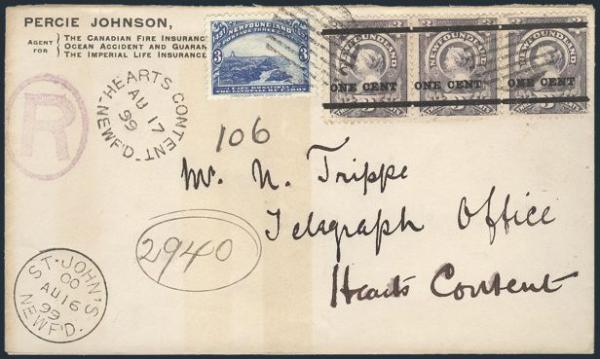 PERCIE JOHNSON,
AGENT FOR
The Canadian Fire Insuranc
Ocean Accident and Guaran
The Imperial Life Insurance
NEWFOUNDLAND
POSTAGE THREE CENTS
3
NEWFOUNDLAND
NEWFOUNDLAND
NEWFOUNDLAND
ONE CENT
ONE CENT
ONE CENT
HEARTS CONTENT
AU 17
99
NEWF'D.
R
106
Mr. N. Trippe
Telegraph Office
Hearts Content
2940
ST. JOHN'S
00
AU 16
99
NEWF'D.